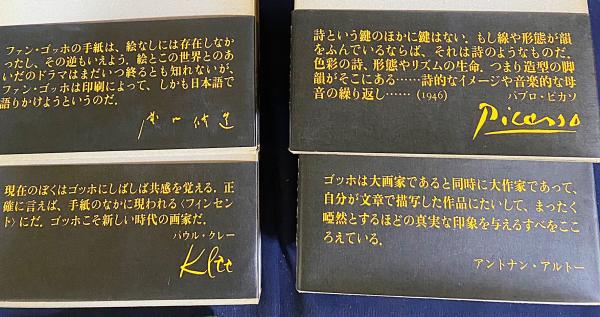 ファン・ゴッホの手紙は、絵なしには存在しなか
ったし、その逆もいえよう。絵とこの世界とのあ
いだのドラマはまだいつ終るとも知れないが、
ファン・ゴッホは印刷によって、しかも日本語で
語りかけようというのだ。
詩という鍵のほかに鍵はない。もし線や形態が韻
をふんでいるならば、それは詩のようなものだ。
色彩の詩、形態やリズムの生命。つまり造型の脚
韻がそこにある……詩的なイメージや音楽的な母
音の繰り返し……(1946)　パブロ・ピカソ
Picasso
現在のぼくはゴッホにしばしば共感を覚える。正
確に言えば、手紙のなかに現われる〈フィンセン
ト〉にだ。ゴッホこそ新しい時代の画家だ。
パウル・クレー
Klee
ゴッホは大画家であると同時に大作家であって、
自分が文章で描写した作品にたいして、まったく
啞然とするほどの真実な印象を与えるすべをここ
ろえている。
アントナン・アルトー